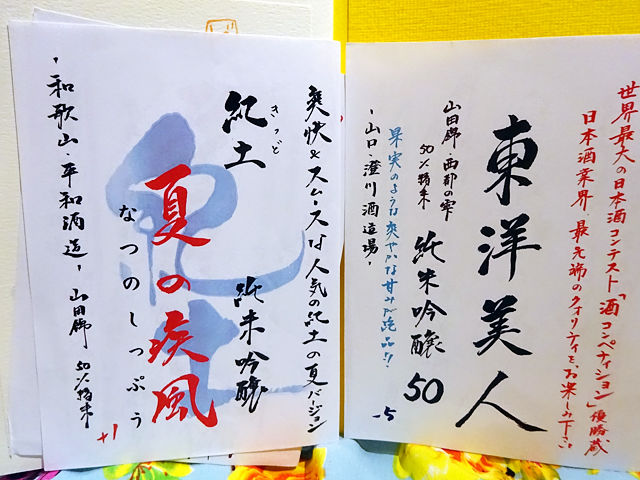 世界最大の日本酒コンテスト「酒コンペティション」優勝蔵
日本酒業界、最先端のクオリティを、お楽しみ下さい。
東洋美人
山田錦・西都の雫
50%精米
純米吟醸 50
果実のような爽やかな甘みが絶品!!
-山口・澄川酒造場-
-5
爽快&スムースな人気の紀土の夏バージョン
きっど
紀土 純米吟醸
夏の疾風
なつのしっぷう
+1
-和歌山・平和酒造- 山田錦 50%精米
紀土